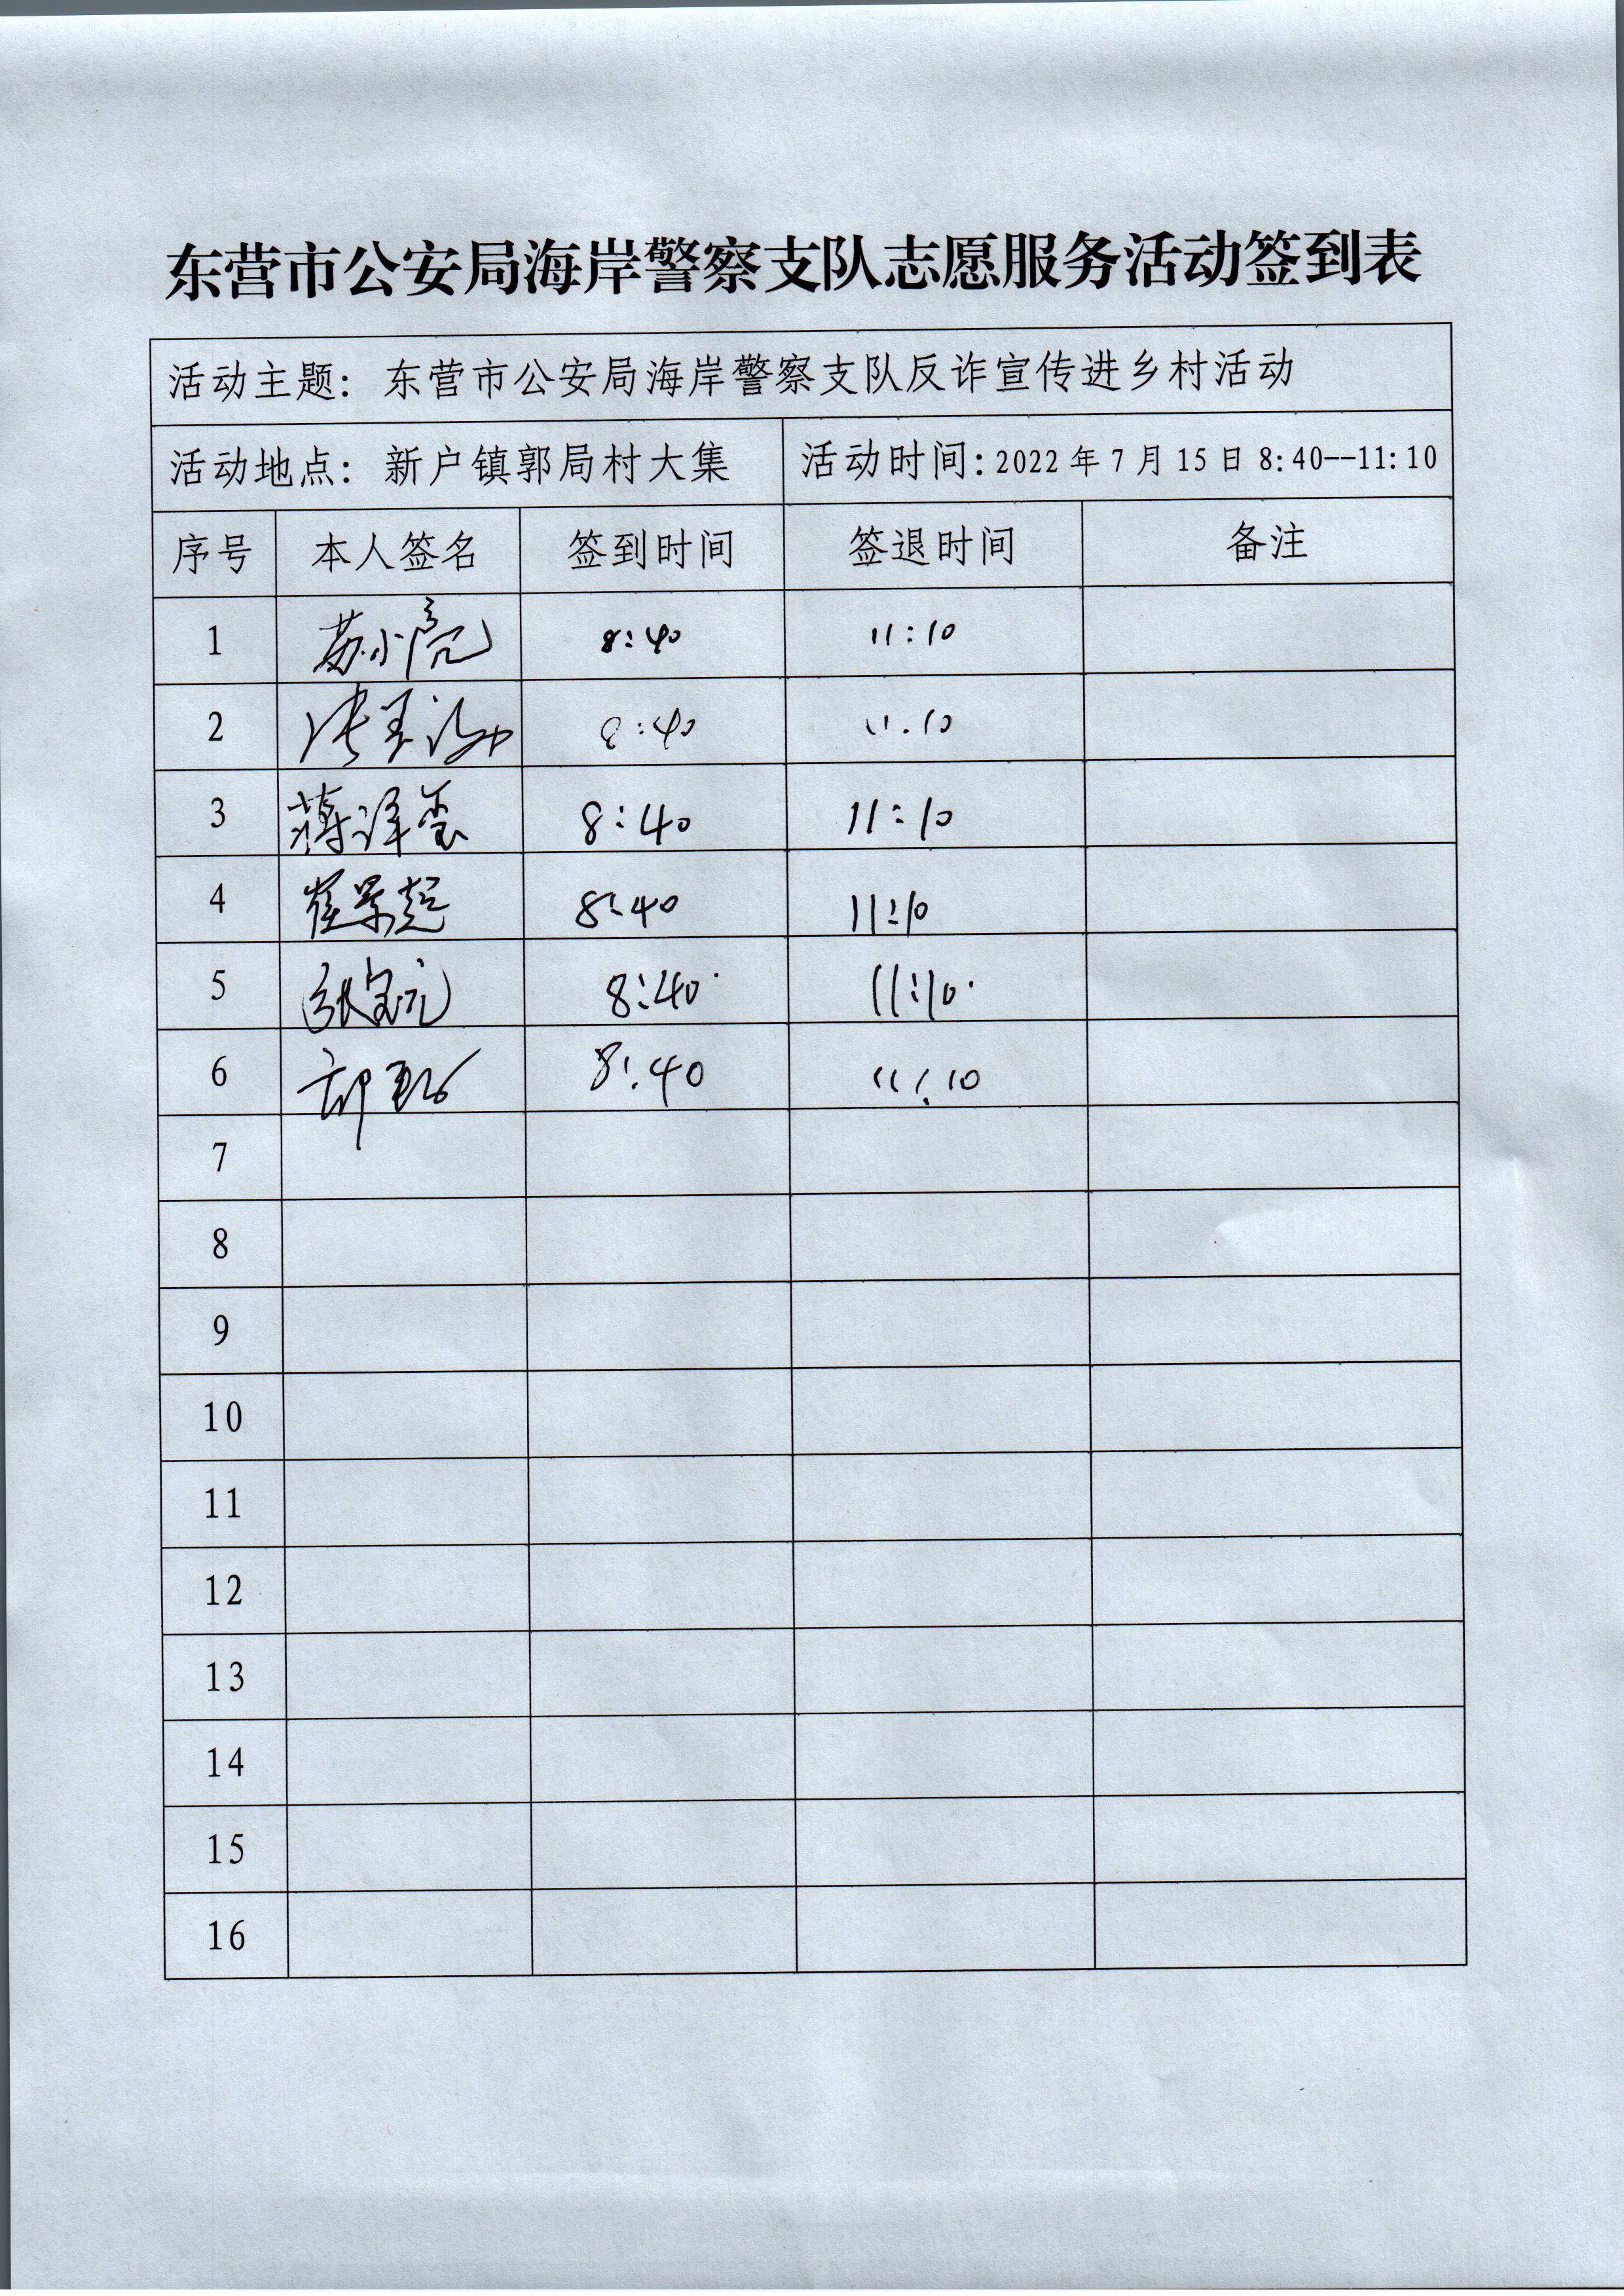 东营市公安局海岸警察支队志愿服务活动签到表
活动主题：东营市公安局海岸警察支队反诈宣传进乡村活动
活动地点：新户镇郭局村大集 活动时间：2022年7月15日8:40--11:10
序号 本人签名 签到时间 签退时间 备注
1 苏小亮 8:40 11:10
2 8:40 11.10
3 8:40 11:10
4 崔景超 8:40 11:10
5 张宝元 8:40 11:10
6 8:40 11:10
7
8
9
10
11
12
13
14
15
16